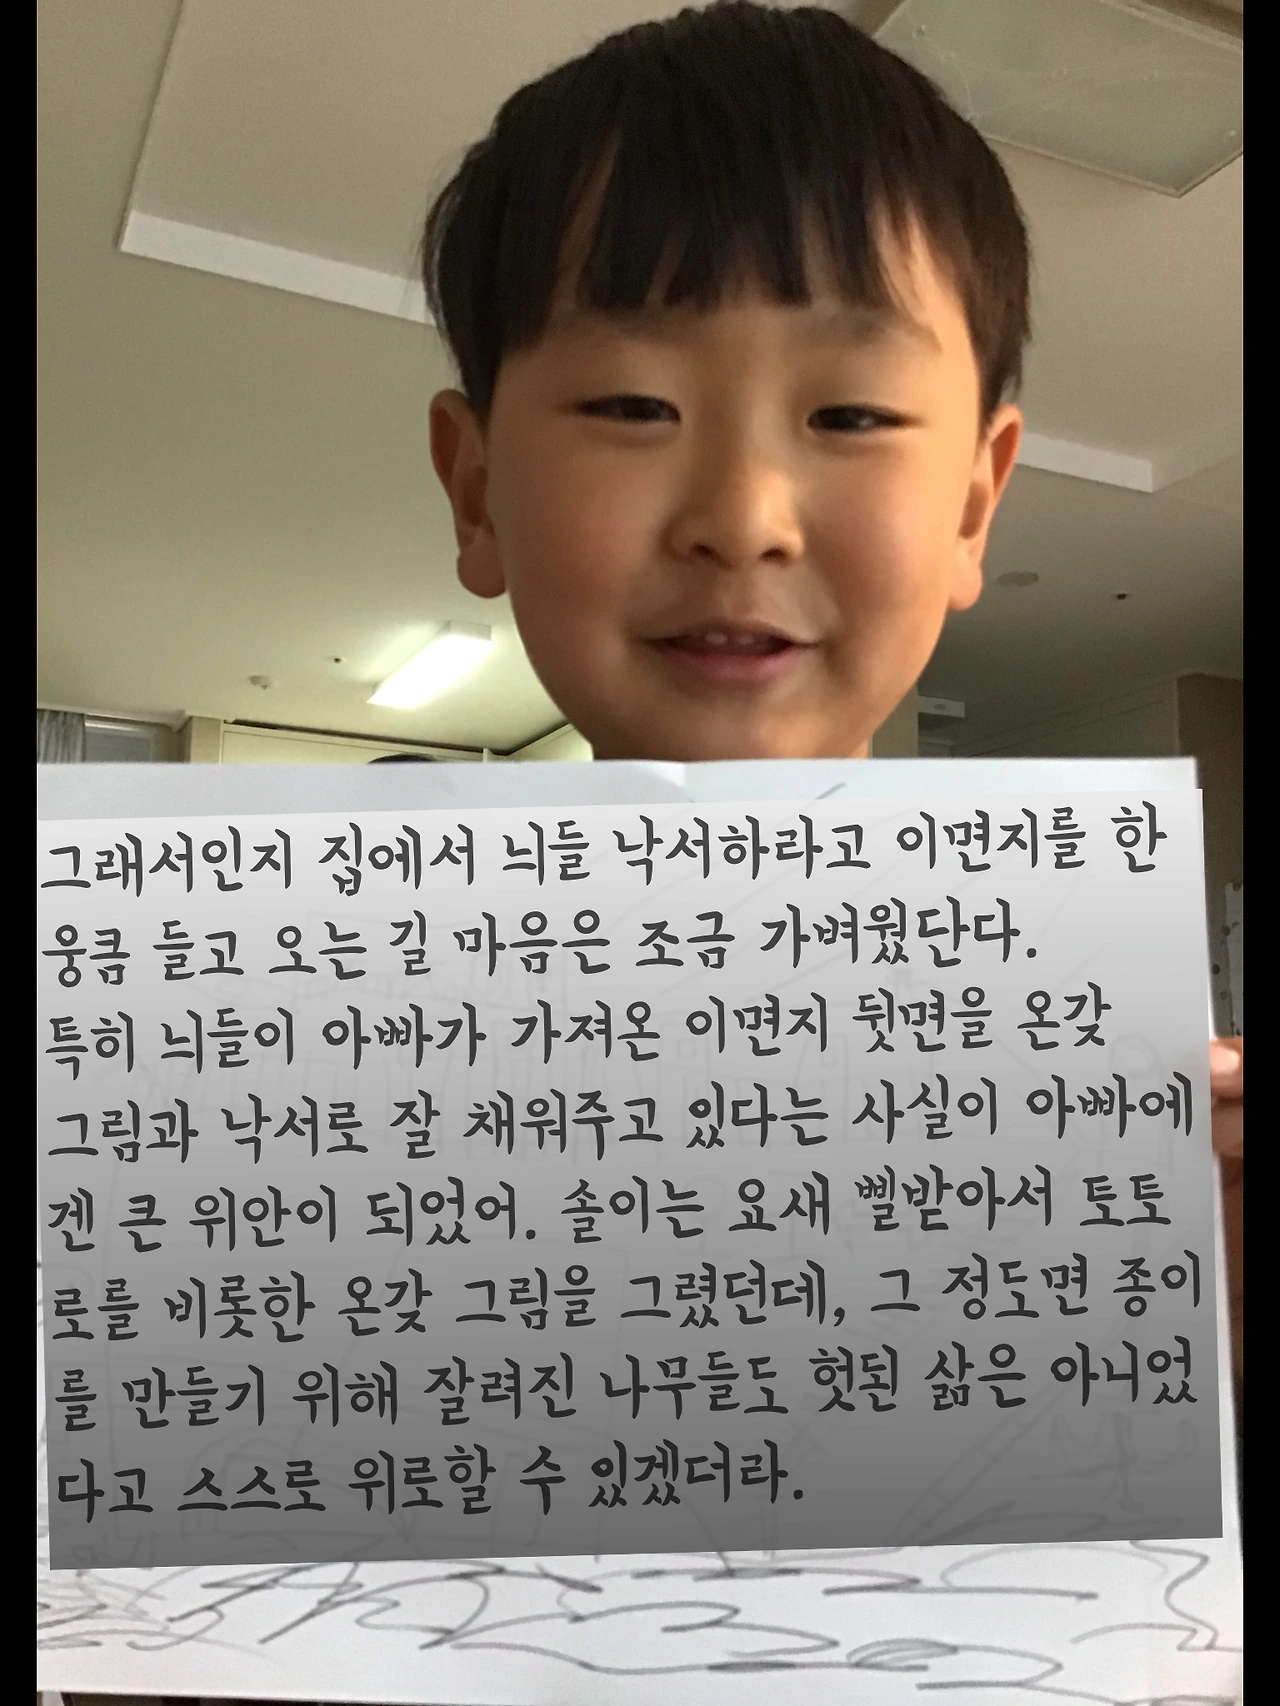 그래서인지 집에서 늬들 낙서하라고 이면지를 한
웅큼 들고 오는 길 마음은 조금 가벼웠단다.
특히 늬들이 아빠가 가져온 이면지 뒷면을 온갖
그림과 낙서로 잘 채워주고 있다는 사실이 아빠에
겐 큰 위안이 되었어. 솔이는 요새 삘받아서 토토
로를 비롯한 온갖 그림을 그렸던데, 그 정도면 종이
를 만들기 위해 잘려진 나무들도 헛된 삶은 아니었
다고 스스로 위로할 수 있겠더라.